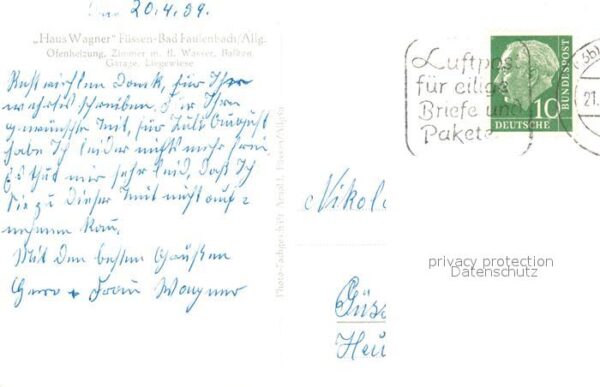 20.4.59.
„Haus Wagner“ Füssen-Bad Faulenbach/Allg.
Ofenheizung, Zimmer m. fl. Wasser, Balkon,
Garage, Liegewiese
Recht vielen Dank, für Ihr
wehrtes schreiben. Für Ihre
gewünschte Zeit, für Juli August
habe Ich leider nichts mehr frei
Es thut mir sehr leid, daß Ich
Sie zu dieser Zeit nicht auf=
nehmen kan.
Mit den besten Grüßen
Herr + Frau Wagner
Photo-Fachgeschäft
Luftpost
für eilige
Briefe und
Pakete
10
DEUTSCHE
BUNDESPOST
21.
Nikol
privacy protection
Datenschutz